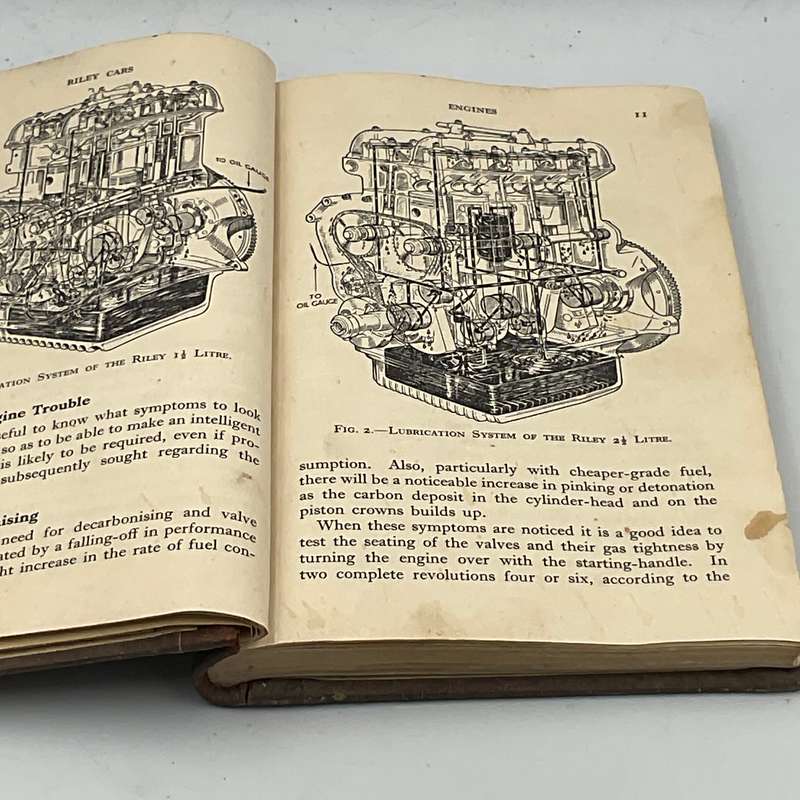 RILEY CARS
TO OIL GAUGE
SYSTEM OF THE RILEY 1½ LITRE.
Trouble
to know what symptoms to look
so as to be able to make an intelligent
is likely to be required, even if pro-
subsequently sought regarding the
need for decarbonising and valve
by a falling-off in performance
increase in the rate of fuel con-
ENGINES
11
TO
OIL GAUGE
FIG. 2.—LUBRICATION SYSTEM OF THE RILEY 2½ LITRE.
sumption. Also, particularly with cheaper-grade fuel,
there will be a noticeable increase in pinking or detonation
as the carbon deposit in the cylinder-head and on the
piston crowns builds up.
When these symptoms are noticed it is a good idea to
test the seating of the valves and their gas tightness by
turning the engine over with the starting-handle. In
two complete revolutions four or six, according to the